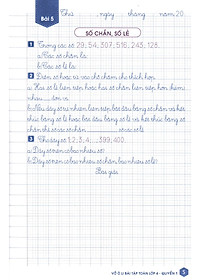 Bài 5
Thứ ngày tháng năm 20
SỐ CHẴN, SỐ LẺ
1 Trong các số 29; 54; 307; 516; 243; 128.
a) Các số chẵn là:
b) Các số lẻ là:
2 Điền số hoặc từ vào chỗ chấm cho thích hợp.
a) Hai số lẻ liên tiếp hoặc hai số chẵn liên tiếp hơn kém
nhau... đơn vị.
b) Nếu dãy số tự nhiên liên tiếp bắt đầu bằng số chẵn và kết
thúc bằng số lẻ hoặc bắt đầu bằng số lẻ và kết thúc bằng số
chẵn thì số các số chẵn số các số lẻ.
3 Cho dãy số 1; 2; 3; 4; ...; 399; 400.
a) Dãy số trên có bao nhiêu số?
b) Dãy số trên có bao nhiêu số chẵn, bao nhiêu số lẻ?
Bài giải
VỞ Ô LI BÀI TẬP TOÁN LỚP 4 - QUYỂN 1
5